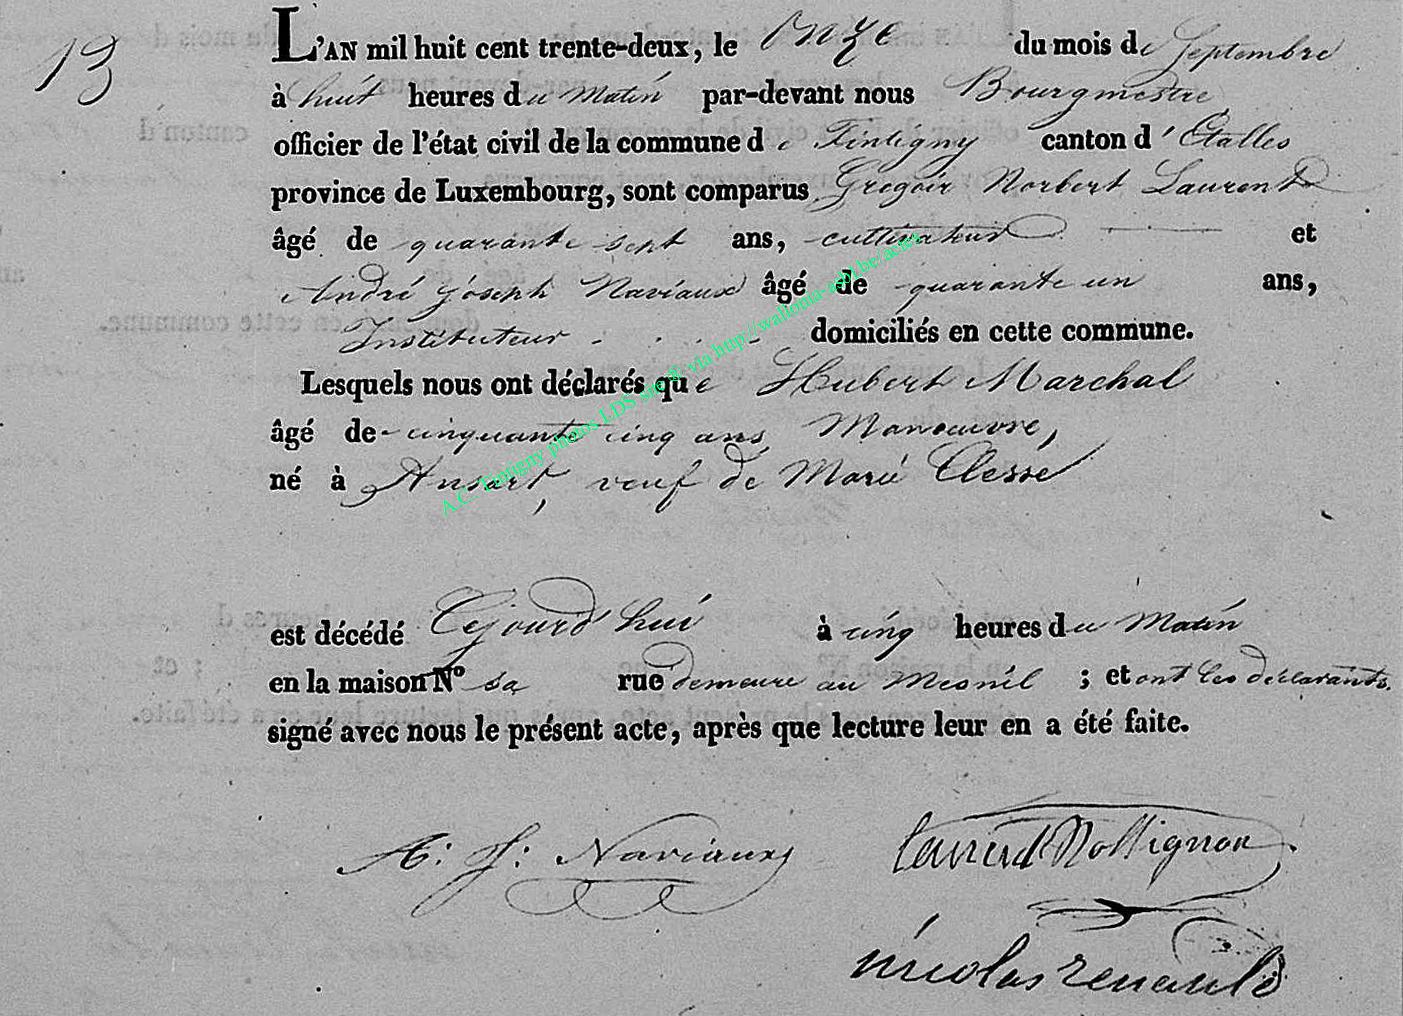 13
L'AN mil huit cent trente-deux, le onze du mois de Septembre
à huit heures du Matin par-devant nous Bourgmestre
officier de l'état civil de la commune de Tintigny canton d'Etalles
province de Luxembourg, sont comparus Gregoir Norbert Laurent
âgé de quarante sept ans, cultivateur et
André joseph Naviaux âgé de quarante un ans,
Instituteur domiciliés en cette commune.
Lesquels nous ont déclarés que Hubert Marchal
âgé de cinquante cinq ans, Manoeuvre,
né à Ansart, veuf de Marie Clessé
est décédé Cejourd'hui à cinq heures du Matin
en la maison No sa rue demeure au Mesnil ; et ont les déclarants
signé avec nous le présent acte, après que lecture leur en a été faite.
A: J: Naviaux
Laurent
nicolas renauld
A.C. Tintigny photos LDS via http://wallonia-asbl.be/actes